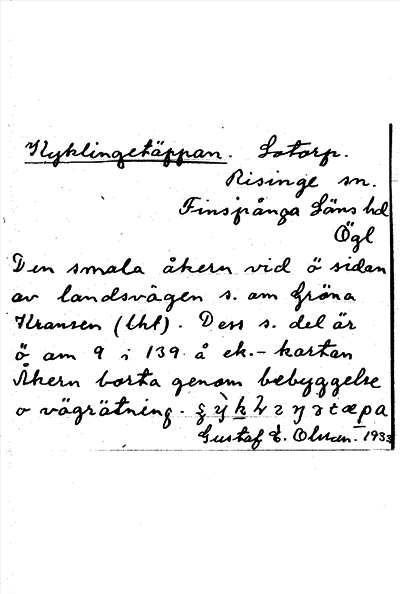 Kyklingetäppan. Lotorp.
Risinge sn.
Finspånga Läns hd
Ögl
Den smala åkern vid ö sidan
av landsvägen s. om Gröna
Kransen (lht). Dess s. del är
ö om 9 i 139 å ek.-kartan
Åkern borta genom bebyggelse
o vägrätning.
Gustaf E. Olsson. 1933